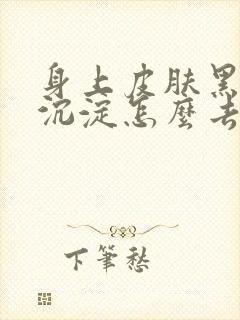 身上皮肤黑
沉淀怎麼去
下筆愁